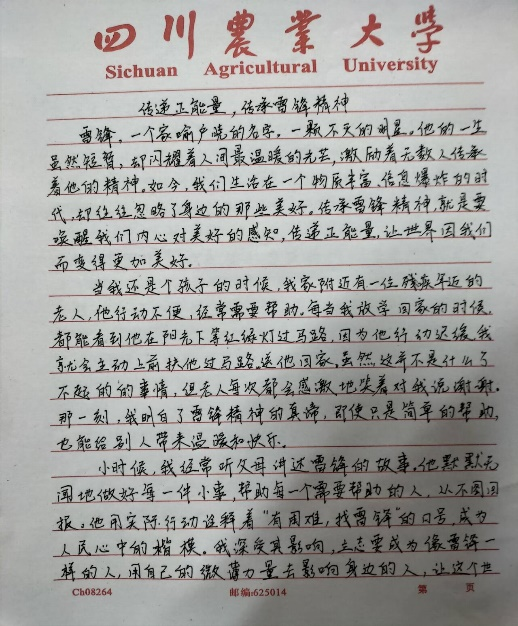 四川農業大学
Sichuan Agricultural University
传递正能量，传承雷锋精神
雷锋，一个家喻户晓的名字，一颗不灭的明星。他的一生
虽然短暂，却闪耀着人间最温暖的光芒，激励着无数人传承
着他的精神。如今，我们生活在一个物质丰富、信息爆炸的时
代，却往往忽略了身边的那些美好。传承雷锋精神，就是要
唤醒我们内心对美好的感知，传递正能量，让世界因我们
而变得更加美好。
当我还是个孩子的时候，我家附近有一位残疾年迈的
老人，他行动不便，经常需要帮助。每当我放学回家的时候，
都能看到他在阳光下等红绿灯过马路，因为他行动迟缓，我
就会主动上前扶他过马路，送他回家。虽然这并不是什么了
不起的的事情，但老人每次都会感激地笑着对我说谢谢。
那一刻，我明白了雷锋精神的真谛，即使只是简单的帮助，
也能给别人带来温暖和快乐。
小时候，我经常听父母讲述雷锋的故事。他默默无
闻地做好每一件小事，帮助每一个需要帮助的人，从不图回
报。他用实际行动诠释着“有困难，找雷锋”的口号，成为
人民心中的楷模。我深受其影响，立志要成为像雷锋一
样的人，用自己的微薄力量去影响身边的人，让这个世
Ch08264 邮编:625014 第 页